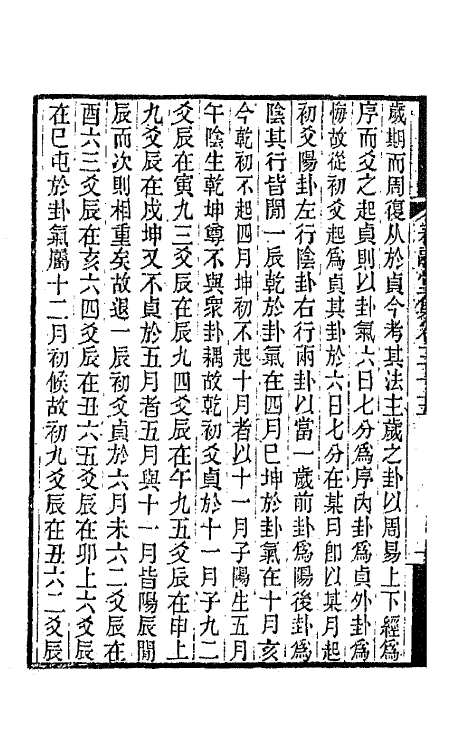 歲期而周復从於貞今考其法主歲之卦以周易上下經爲
序而爻之起貞則以卦氣六日七分爲序內卦爲貞外卦爲
悔故從初爻起爲貞其卦於六日七分在某月卽以某月起
初爻陽卦左行陰卦右行兩卦以當一歲前卦爲陽後卦爲
陰其行皆閒一辰乾於卦氣在四月巳坤於卦氣在十月亥
今乾初不起四月坤初不起十月者以十一月子陽生五月
午陰生乾坤尊不與衆卦耦故乾初爻貞於十一月子九二
爻辰在寅九三爻辰在辰九四爻辰在午九五爻辰在申上
九爻辰在戍坤又不貞於五月者五月與十一月皆陽辰閒
辰而次則相重矣故退一辰初爻貞於六月未六二爻辰在
酉六三爻辰在亥六四爻辰在丑六五爻辰在卯上六爻辰
在巳屯於卦氣屬十二月初候故初九爻辰在丑六二爻辰